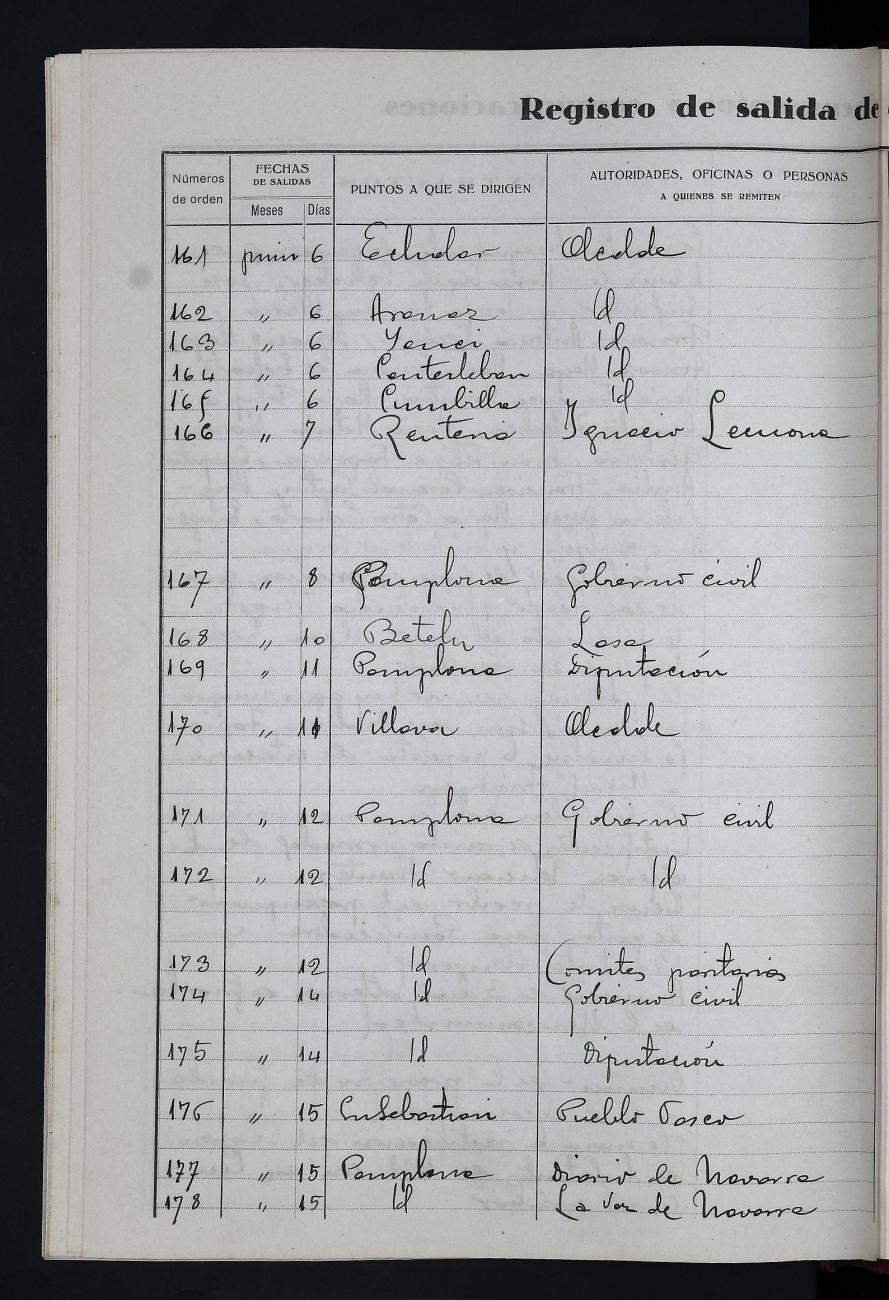 Registro de salida de
Números de orden FECHAS DE SALIDAS Meses Días PUNTOS A QUE SE DIRIGEN AUTORIDADES, OFICINAS O PERSONAS A QUIENES SE REMITEN
161 junio 6 Echalar Alcalde
162 〃 6 Aranaz Id
163 〃 6 Yanci Id
164 〃 6 Id
165 〃 6 Sumbilla Id
166 〃 7 Renteria Ignacio Lecuona
167 〃 8 Pamplona Gobierno civil
168 〃 10 Betelu Lasa
169 〃 11 Pamplona Diputación
170 〃 11 Villava Alcalde
171 〃 12 Pamplona Gobierno civil
172 〃 12 Id Id
173 〃 12 Id Comites paritarios
174 〃 14 Id Gobierno civil
175 〃 14 Id Diputación
176 〃 15 Sn Sebastian Pueblo Vasco
177 〃 15 Pamplona Diario de Navarra
178 〃 15 Id La Voz de Navarra